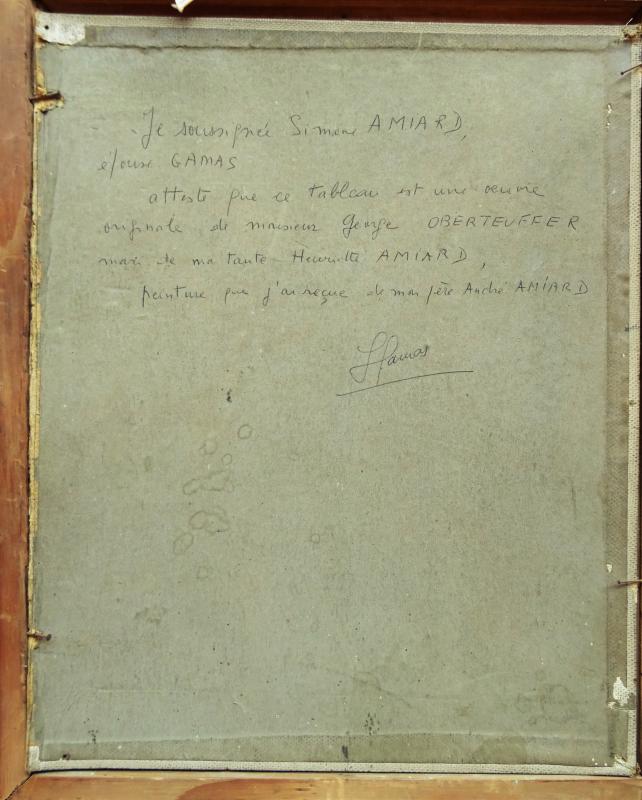 Je soussignée Simone AMIARD,
épouse GAMAS
atteste que ce tableau est une œuvre
originale de monsieur George OBERTEUFFER
mari de ma tante Henriette AMIARD,
peinture que j'ai reçue de mon père André AMIARD
SGamas